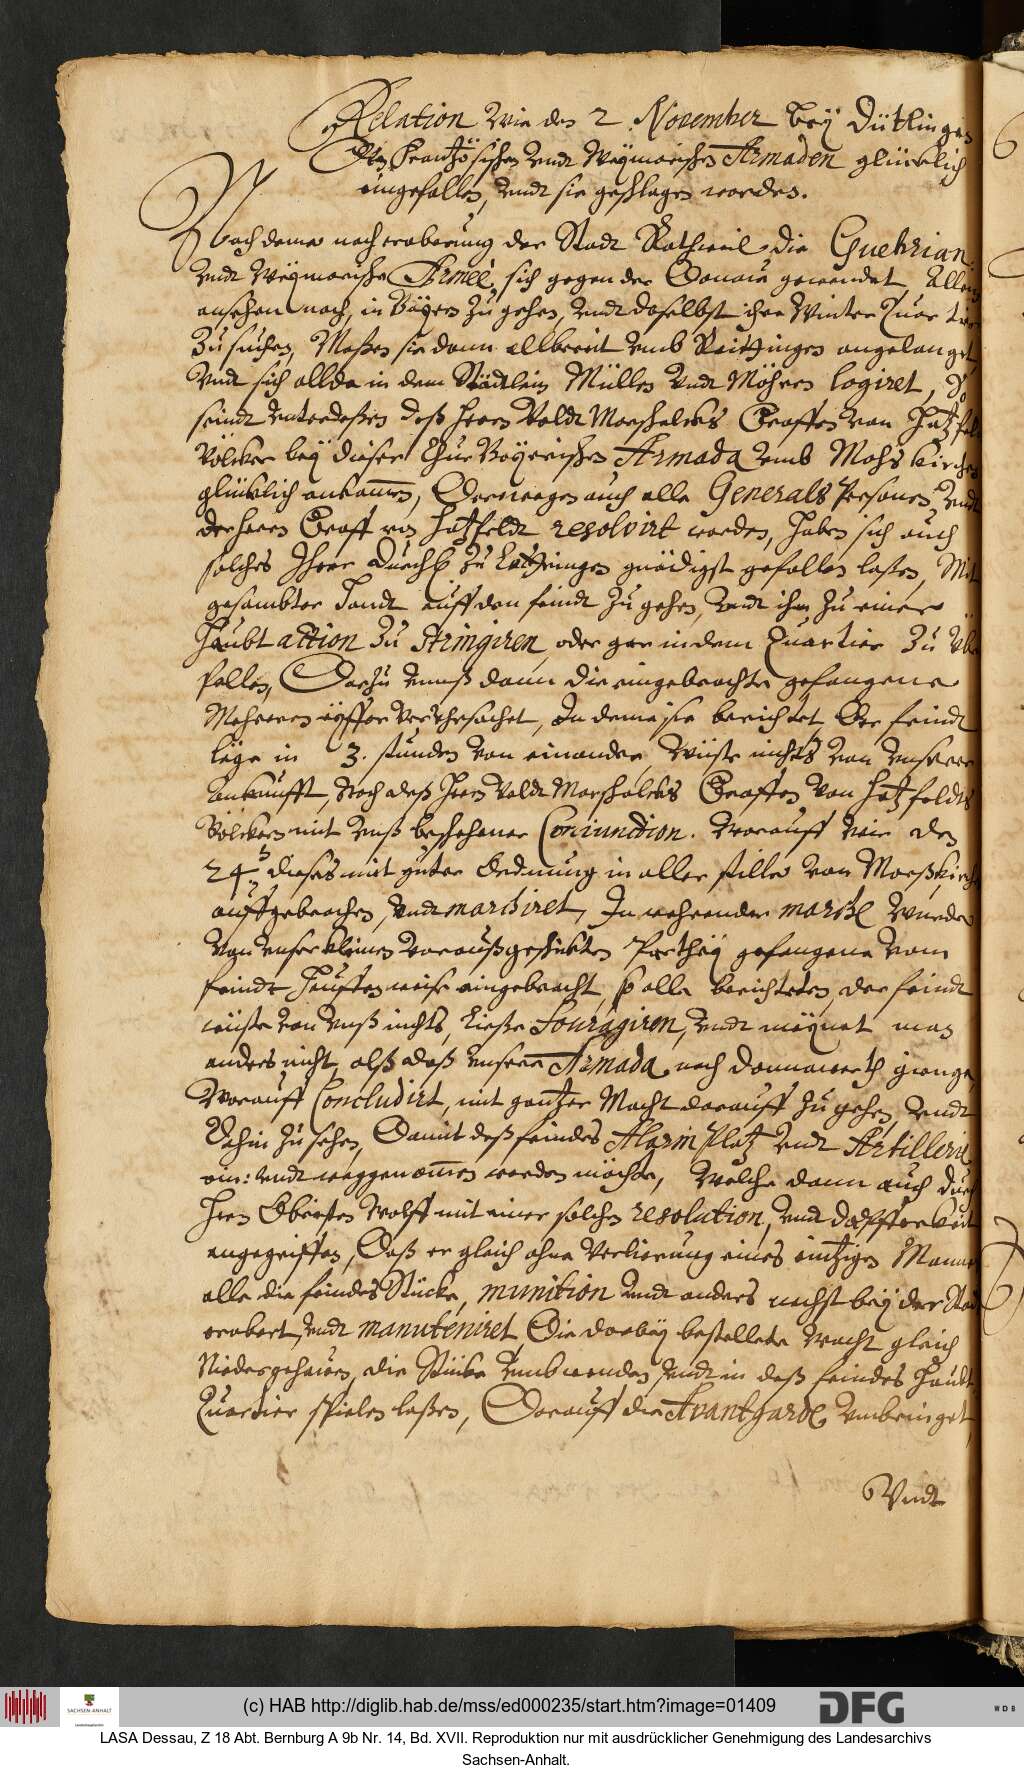 Relation Wie den 2 November bey Dütlingen
Die Frantzösischen undt Weymarischen Armaden glücklich
eingefallen, undt sie geschlagen worden.
Nachdeme nach eroberung der Stadt Rothweil die Guebrian.
undt Weymarische Armeè sich gegen der Donaw gewendet, Allem
ansehen nach, in Bäyern zu gehen, undt daselbst ihre Winter Quartier
Zu suchen, Maßen sie dann allbereit umb angelanget,
undt sich allda in dem Städtlein Müllen undt Möhren logiret, So
seindt unterdeßen deß Herrn Veldt Marschalcks Graffen von Hatzfeldt
Völcker bey dieser Chur Bäyerischen Armada umb Möhskirchen
glücklich ankommen, Derowegen auch alle Generals Personen undt
der Herr Graff von Hatzfeldt resolvirt worden, haben sich auch
solches Ihrer Durchl zu Lottringen gnädigst gefallen laßen, Mit
gesambter Handt auff den feindt zu gehen, undt ihn zu einer
Haubt action Zu stringiren, oder gar in dem Quartier Zu über
fallen, Darzu unnß dann die eingebrachte gefangene
Mehreren eyffer verursachet, In deme sie berichtet Der feindt
lege in 3. stunden von einander, wüste nichts von unserer
Ankunfft, Noch deß Herrn Veldt Marschalcks Graffen von Hatzfeldts
Völckern mit unß beschehener Coniunction. Worauff wir den
24 dieses mit guter Ordnung in aller stille von Mößkirch
auffgebrochen, undt marchiret, In wehrender march wurden
von unser kleinen vorauß geschickten Parthey gefangene vom
feindt hauffenweise eingebracht, so alle berichteten, der feindt
wüste von unß nichts, ließe fouragiren, undt meynet man
anders nicht, alß daß unsere Armada nach Donnawerth gienge,
Worauff Concludirt, mit gantzer Macht darauff zu gehen, undt
Dahin zu sehen, Damit deß feindes Alarm Platz undt Artillerie
ein: undt weggenommen werden möchte, Welche dann auch durch
Herrn Obristen Wolff mit einer solchen resolution, undt dapfferkeit
angegriffen, Daß er gleich ohne Verlierung eines eintzigen Mannes
alle die feindes Stücke, munition undt anders nechst bey der Stadt
erobert, undt manuteniret, Die darbey bestellete Wacht gleich
Niedergehawen, die Stücke umbwenden, undt in deß feindes Haubt
Quartier spielen laßen, Darauff die Avantgarde umbringet,
Undt
(c) HAB http://diglib.hab.de/mss/ed000235/start.htm?image=01409
SACHSEN-ANHALT
DFG
WDB
LASA Dessau, Z 18 Abt. Bernburg A 9b Nr. 14, Bd. XVII. Reproduktion nur mit ausdrücklicher Genehmigung des Landesarchivs
Sachsen-Anhalt.